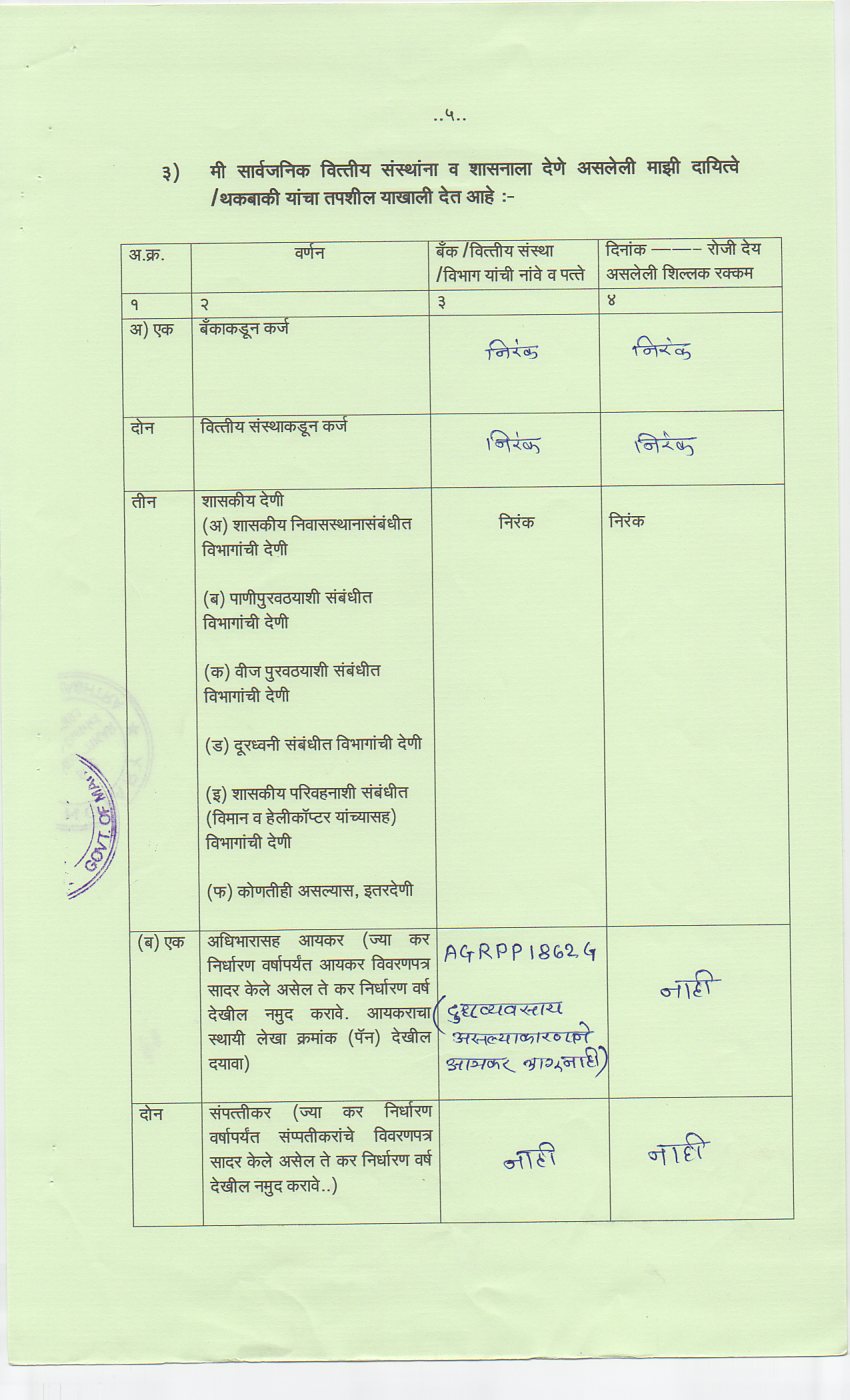 ..५..
३) मी सार्वजनिक वित्तीय संस्थांना व शासनाला देणे असलेली माझी दायित्वे
/थकबाकी यांचा तपशील याखाली देत आहे :-
अ.क्र. वर्णन बँक /वित्तीय संस्था दिनांक ——— रोजी देय
/विभाग यांची नांवे व पत्ते असलेली शिल्लक रक्कम
१ २ ३ ४
अ) एक बँकाकडून कर्ज
निरंक निरंक
दोन वित्तीय संस्थाकडून कर्ज
निरंक निरंक
तीन शासकीय देणी
(अ) शासकीय निवासस्थानासंबंधीत निरंक निरंक
विभागांची देणी
(ब) पाणीपुरवठयाशी संबंधीत
विभागांची देणी
(क) वीज पुरवठयाशी संबंधीत
विभागांची देणी
(ड) दूरध्वनी संबंधीत विभागांची देणी
(इ) शासकीय परिवहनाशी संबंधीत
(विमान व हेलीकॉप्टर यांच्यासह)
विभागांची देणी
GOVT. OF
(फ) कोणतीही असल्यास, इतरदेणी
(ब) एक अधिभारासह आयकर (ज्या कर AGRPP1862G
निर्धारण वर्षापर्यंत आयकर विवरणपत्र
सादर केले असेल ते कर निर्धारण वर्ष नाही
देखील नमुद करावे. आयकराचा (दुग्धव्यवसाय
स्थायी लेखा क्रमांक (पॅन) देखील असल्याकारणाने
दयावा) आयकर लागू नाही)
दोन संपत्तीकर (ज्या कर निर्धारण
वर्षापर्यंत संप्पतीकरांचे विवरणपत्र
सादर केले असेल ते कर निर्धारण वर्ष नाही नाही
देखील नमुद करावे..)